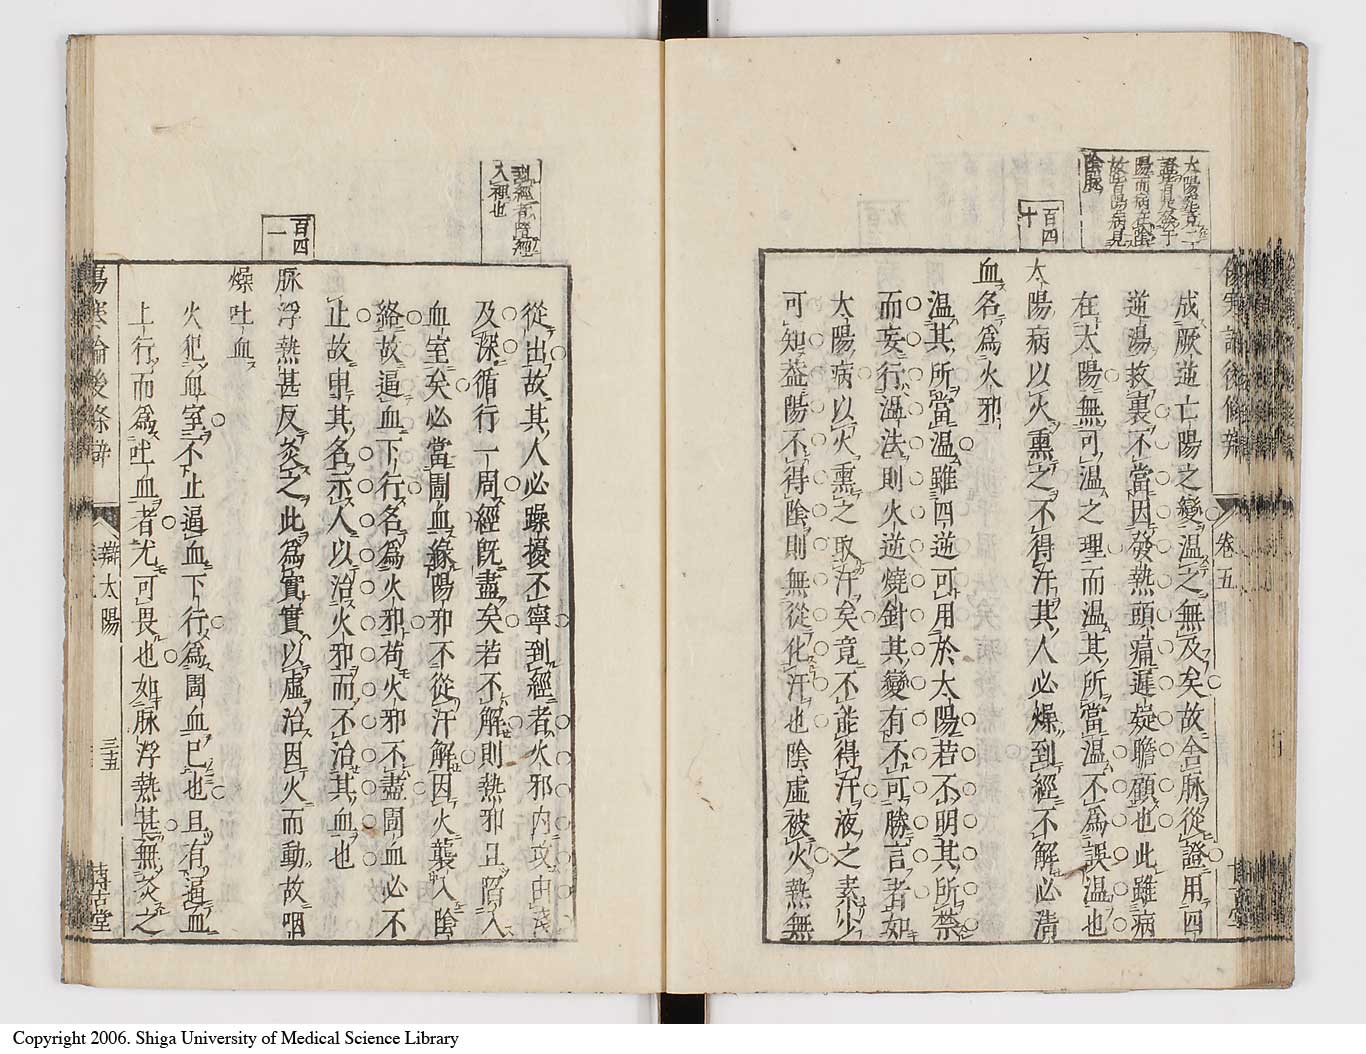 太陽
陰脉
百四
十
成厥逆亡陽之變溫之無及矣故舍脉從證用四
逆湯救裏不當因發熱頭痛遲疑瞻顧也此雖病
在太陽無可溫之理而溫其所當溫不為誤溫也
太陽病以火熏之不得汗其人必燥到經不解必淸
血名爲火邪
溫其所當溫雖四逆可用於太陽若不明其所禁
而妄行溫法則火逆燒針其變有不可勝言者如
太陽病以火熏之取汗矣竟不能得汗液之素少
可知葢陽不得陰則無從化汗也陰虛被火熱無
卷五
到經者隨經
入裡也
百四
一
從出故其人必躁擾不寧到經者火邪內攻由淺
及深循行一周經旣盡矣若不解則熱邪且陷入
血室矣必當圊血緣陽邪不從汗解因火襲入陰
絡故逼血下行名為火邪苟火邪不盡圊血必不
止故申其名示人以治火邪而不治其血也
脉浮熱甚反炎之此爲實實以虛治因火而動故咽
燥吐血
火犯血室不止逼血下行爲圊血已也且有逼血
上行而爲吐血者尤可畏也如脉浮熱甚無炎之
傷寒論後條辯
辯太陽
三五
博古堂
Copyright 2006. Shiga University of Medical Science Library